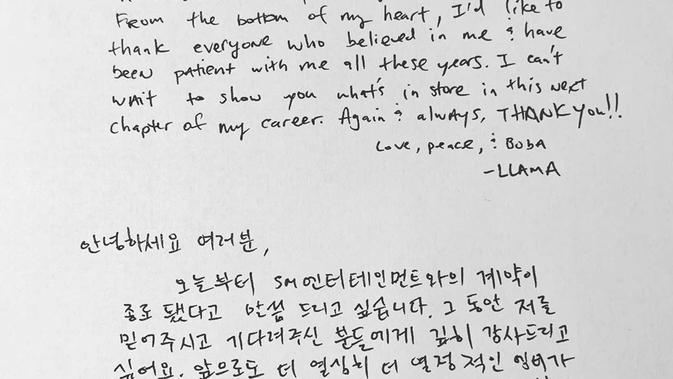 From the bottom of my heart, I'd like to
thank everyone who believed in me & have
been patient with me all these years. I can't
wait to show you what's in store in this next
chapter of my career. Again & always, THANK You!!
Love, peace, & BOBA
-LLAMA
안녕하세요 여러분,
오늘부터 SM엔터테인먼트와의 계약이
종료 됐다고 말씀 드리고 싶습니다. 그 동안 저를
믿어주시고 기다려주신 분들에게 깊히 감사드리고
싶어요. 앞으로도 더 열심히 더 열정적인 엠버가